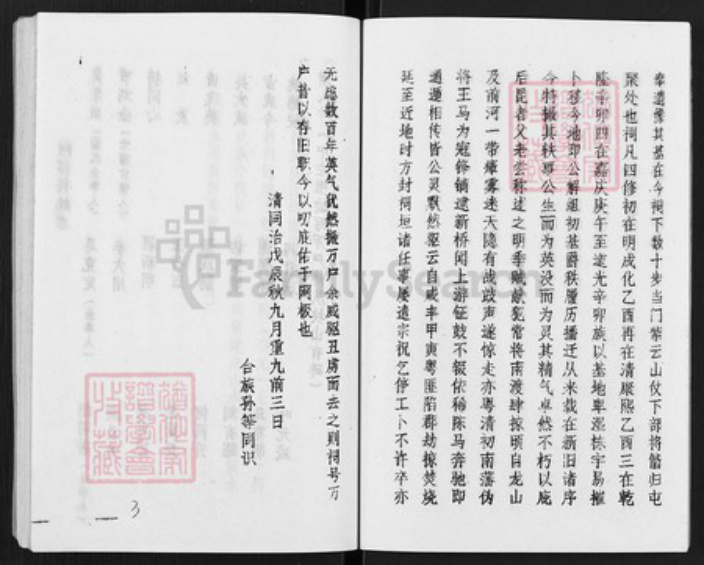 奉遗像其基在今祠下数十步当门紫云山仗下部将骼归屯
聚处也祠凡四修初在明成化乙酉再在清康熙乙酉三在乾
隆辛卯四在嘉庆庚午至道光辛卯族以基地卑湿栋宇易摧
卜移今地即公解组初基爵秩履历播迁从来载在新旧诸序
今特撮其轶事公生而为英没而为灵其精气卓然不朽以庇
后昆者父老尝称述之明季贼献犯常将南渡肆掠顷自龙山
及前河一带瘴雾迷天隐有战鼓声遂惊走亦粤清初南藩伪
将王马为寇锋镝逮新桥闻上游钲鼓不辍依稀阵马奔驰即
通遁相传皆公灵默然驱云自咸丰甲寅粤匪陷郡劫掠焚烧
延至近地时方封祠垣诸任事屡遣宗祝乞停工卜不许卒亦
无恙数百年英气犹然撤万户余威驱丑虏而去之则祠号万
户昔以存旧职今以叨庇佑于罔极也
清同治戊辰秋九月重九前三日
合族孙等同识
3
FamilySearch